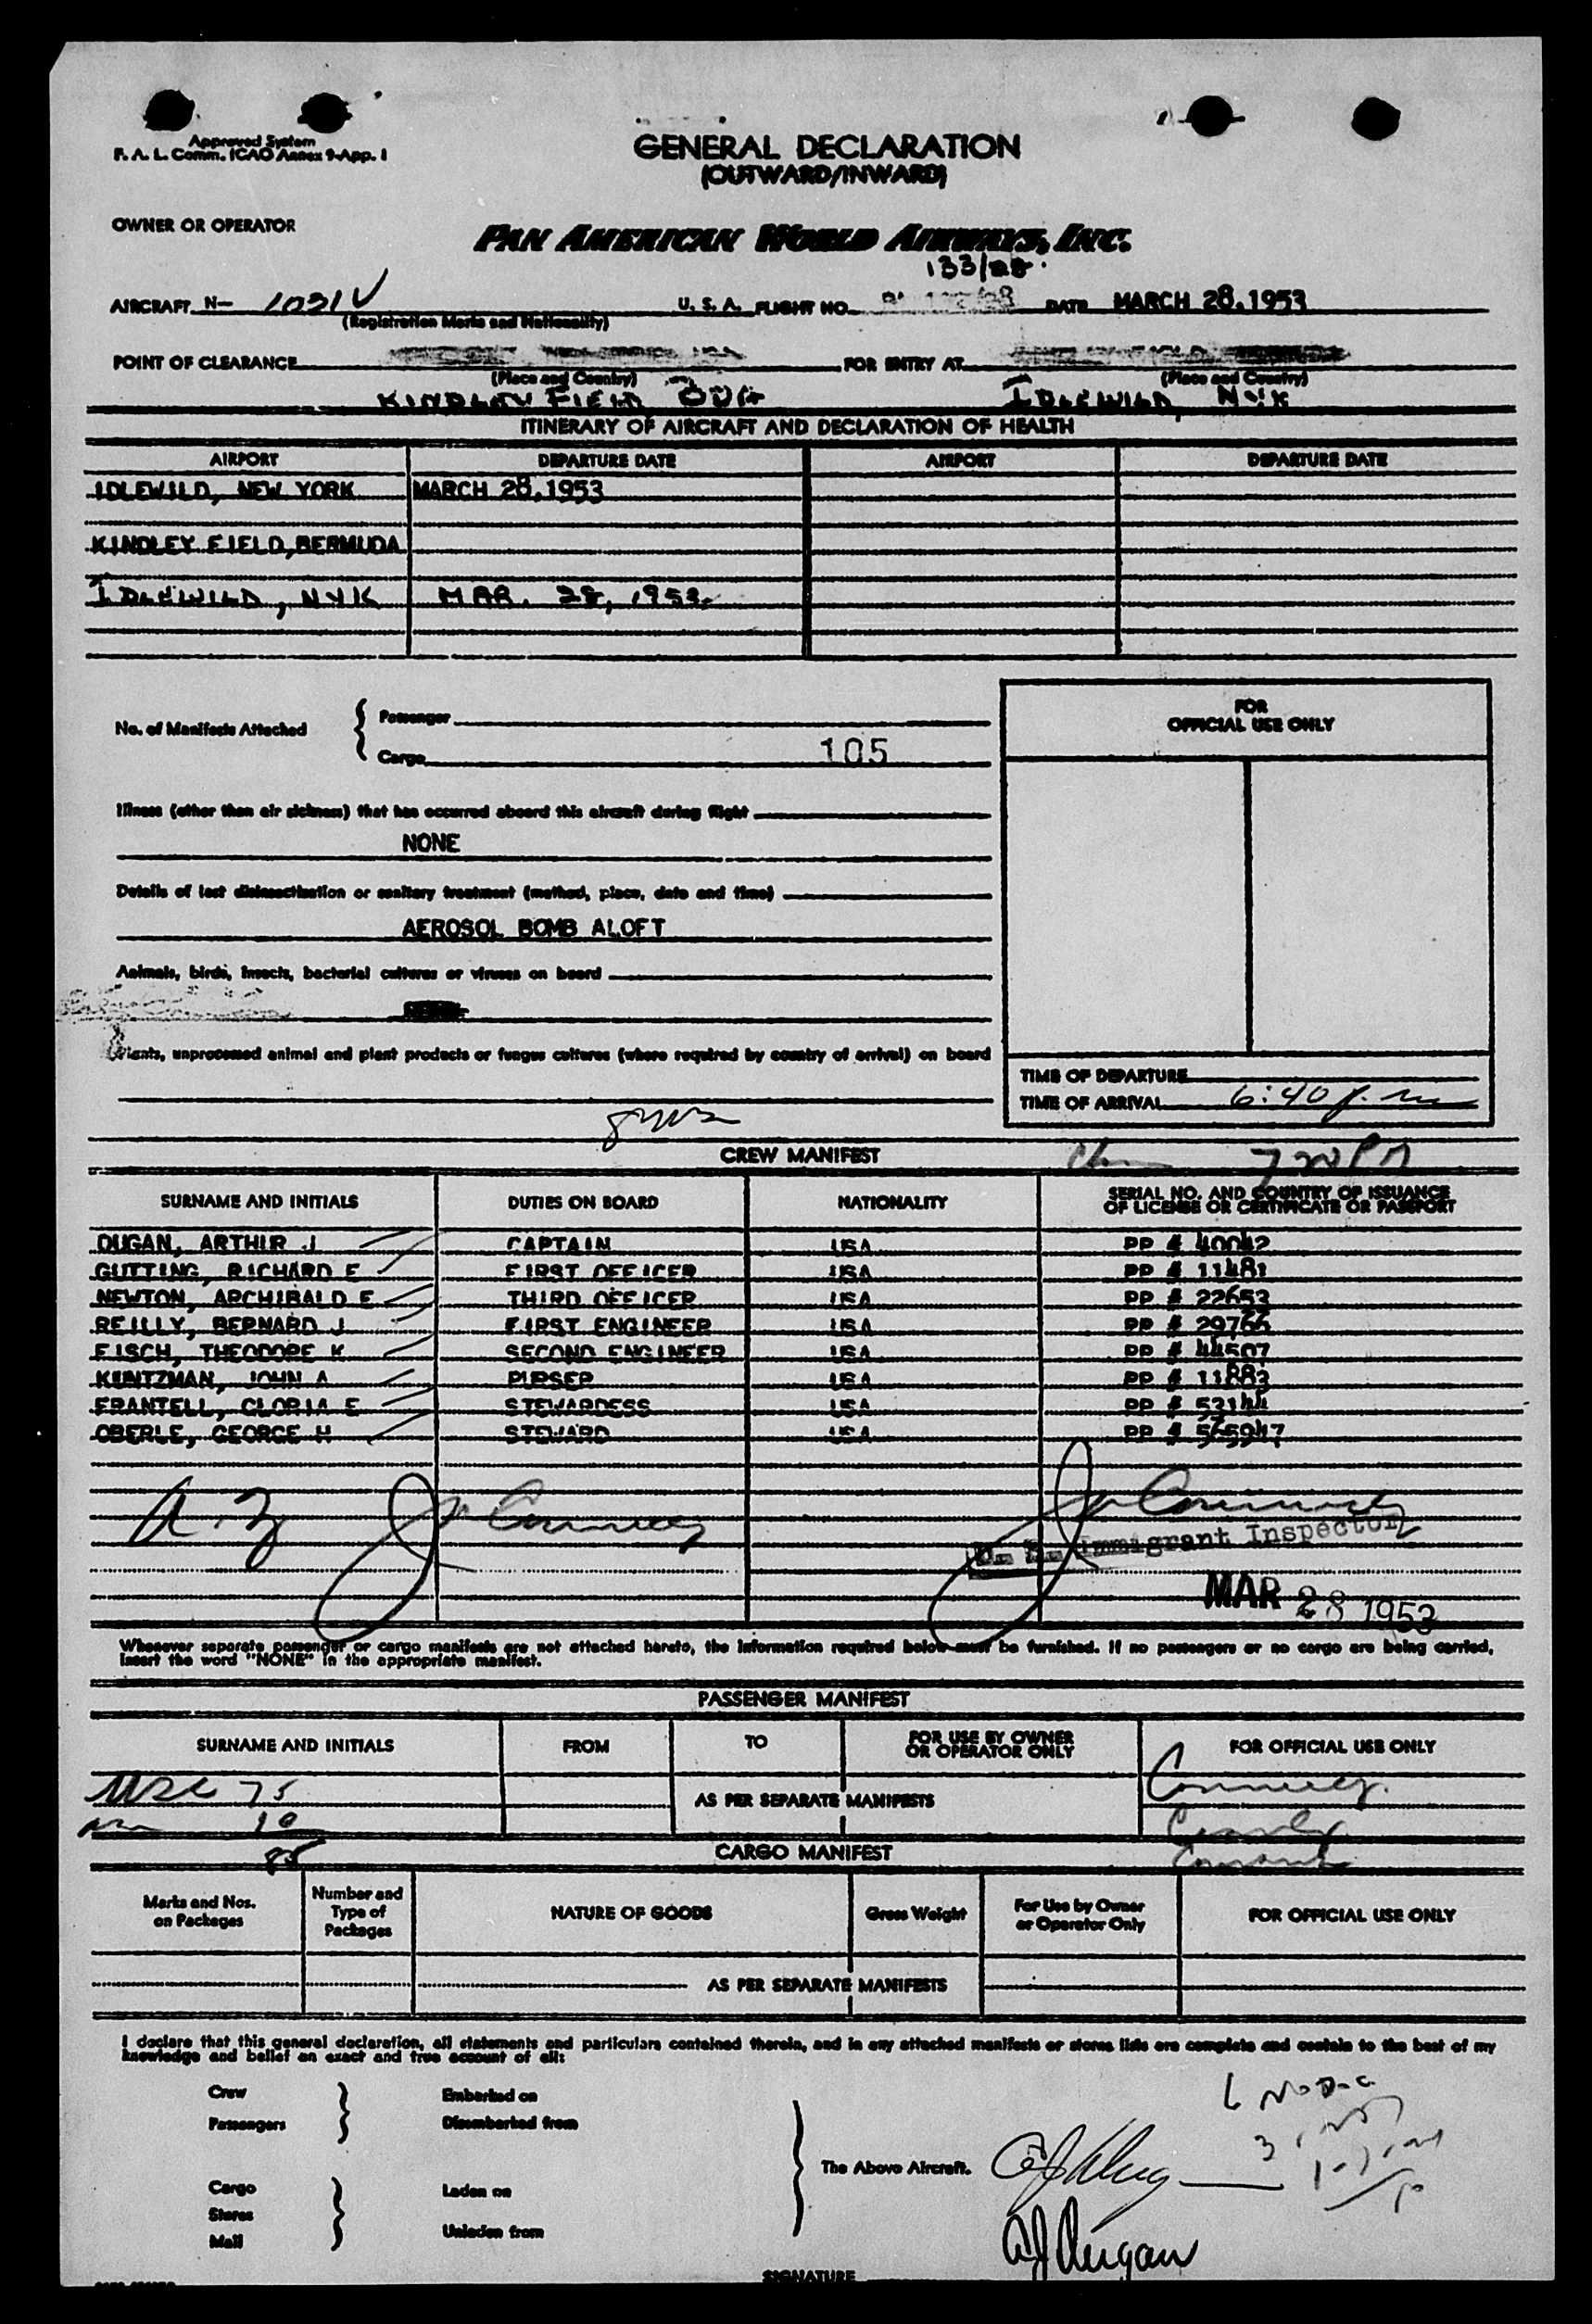 Approved System
F. A. L. Comm. ICAO Annex 9-App. 1
GENERAL DECLARATION
(OUTWARD/INWARD)
OWNER OR OPERATOR
PAN AMERICAN WORLD AIRWAYS, INC.
133/28
AIRCRAFT N- 1031V U. S. A. FLIGHT NO. DATE MARCH 28,1953
(Registration Marks and Nationality)
POINT OF CLEARANCE FOR ENTRY AT
(Place and Country) (Place and Country)
KINDLEY FIELD IDLEWILD, NYK
ITINERARY OF AIRCRAFT AND DECLARATION OF HEALTH
AIRPORT DEPARTURE DATE AIRPORT DEPARTURE DATE
IDLEWILD, NEW YORK MARCH 28,1953
KINDLEY FIELD,BERMUDA
IDLEWILD, NYK MAR. 28, 1953
No. of Manifests Attached { Passenger
Cargo 105
FOR
OFFICIAL USE ONLY
Illness (other than air sickness) that has occurred aboard this aircraft during flight
NONE
Details of last disinsectization or sanitary treatment (method, place, date and time)
AEROSOL BOMB ALOFT
Animals, birds, insects, bacterial cultures or viruses on board
Plants, unprocessed animal and plant products or fungus cultures (where required by country of arrival) on board
TIME OF DEPARTURE
TIME OF ARRIVAL 6:40 p.m
CREW MANIFEST
SURNAME AND INITIALS DUTIES ON BOARD NATIONALITY SERIAL NO. AND COUNTRY OF ISSUANCE
OF LICENSE OR CERTIFICATE OR PASSPORT
DUGAN, ARTHUR J CAPTAIN USA PP # 40042
GUTTING, RICHARD E FIRST OFFICER USA PP # 11481
NEWTON, ARCHIBALD E THIRD OFFICER USA PP # 22653
REILLY, BERNARD J FIRST ENGINEER USA PP # 29766
FISCH, THEODORE K SECOND ENGINEER USA PP # 44507
KUNTZMAN, JOHN A PURSER USA PP # 11883
FRANTELL, GLORIA E STEWARDESS USA PP # 53144
OBERLE, GEORGE H STEWARD USA PP # 565947
U. S. Immigrant Inspector
MAR 28 1953
Whenever separate passenger or cargo manifests are not attached hereto, the information required below must be furnished. If no passengers or no cargo are being carried,
insert the word "NONE" in the appropriate manifest.
PASSENGER MANIFEST
SURNAME AND INITIALS FROM TO FOR USE BY OWNER
OR OPERATOR ONLY FOR OFFICIAL USE ONLY
USC 75
10
AS PER SEPARATE MANIFESTS
85
CARGO MANIFEST
Marks and Nos.
on Packages Number and
Type of
Packages NATURE OF GOODS Gross Weight For Use by Owner
or Operator Only FOR OFFICIAL USE ONLY
AS PER SEPARATE MANIFESTS
I declare that this general declaration, all statements and particulars contained therein, and in any attached manifests or stores lists are complete and contain to the best of my
knowledge and belief an exact and true account of all:
Crew Embarked on
Passengers Disembarked from
The Above Aircraft.
Cargo Laden on
Stores
Mail Unladen from
AJ Dugan
SIGNATURE